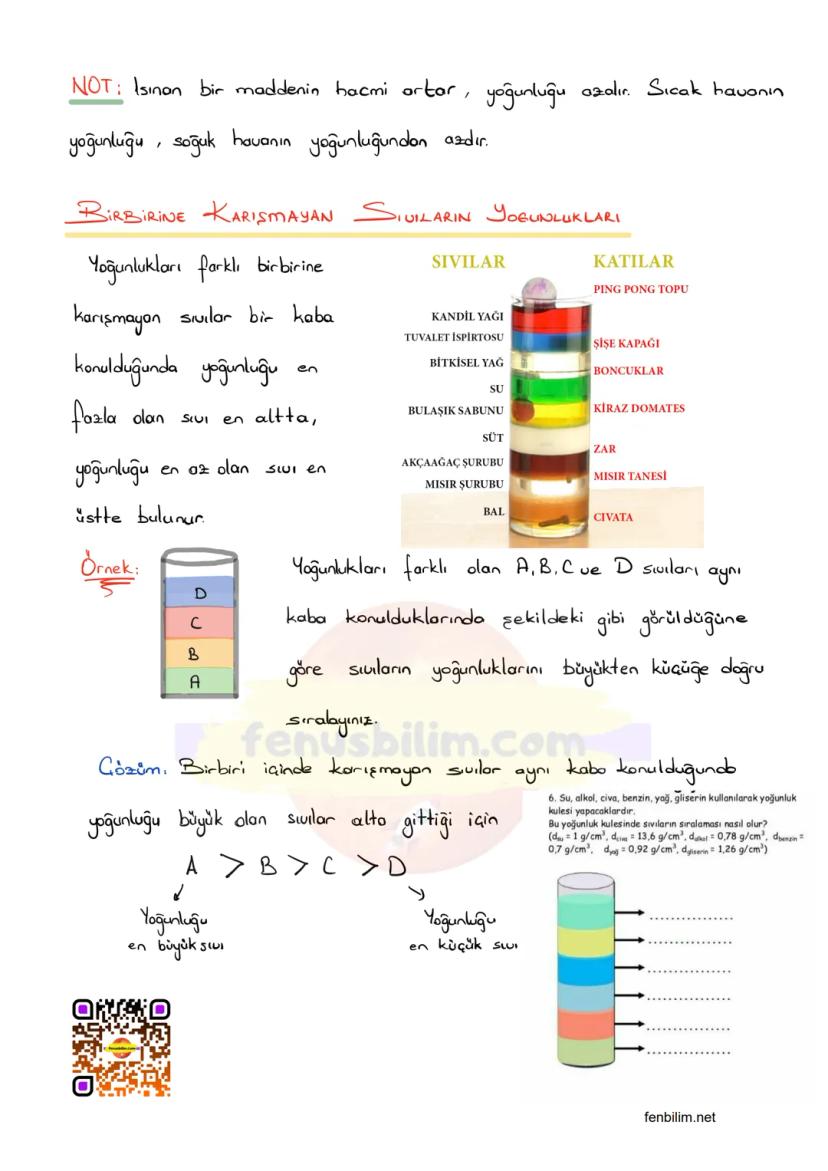 NOT: Isınan bir maddenin hacmi artar, yoğunluğu azalır. Sıcak havanın
yoğunluğu, soğuk havanın yoğunluğundan azdır.
BİRBİRİNE KARIŞMAYAN SIVILARIN YOĞUNLUKLARI
Yoğunlukları farklı birbirine
karışmayan sıvılar bir kaba
konulduğunda yoğunluğu en
fazla olan sıvı en altta,
yoğunluğu en az olan sıvı en
üstte bulunur.
SIVILAR
KANDİL YAĞI
TUVALET İSPİRTOSU
BİTKİSEL YAĞ
SU
BULAŞIK SABUNU
SÜT
AKÇAAĞAÇ ŞURUBU
MISIR ŞURUBU
BAL
KATILAR
PING PONG TOPU
ŞİŞE KAPAĞI
BONCUKLAR
KİRAZ DOMATES
ZAR
MISIR TANESİ
CIVATA
Örnek:
D
C
B
A
Yoğunlukları farklı olan A, B, C ve D sıvıları aynı
kaba konulduklarında şekildeki gibi görüldüğüne
göre sıvıların yoğunluklarını büyükten küçüğe doğru
sıralayınız.
fenusbilim.com
Çözüm: Birbiri içinde karışmayan sıvılar aynı kaba konulduğunda
yoğunluğu büyük olan sıvılar alta gittiği için
A > B > C > D
Yoğunluğu
en büyük sıvı
Yoğunluğu
en küçük sıvı
6. Su, alkol, civa, benzin, yağ, gliserin kullanılarak yoğunluk
kulesi yapacaklardır.
Bu yoğunluk kulesinde sıvıların sıralaması nasıl olur?
(dsu = 1 g/cm³, dciva = 13,6 g/cm³, dalkol = 0,78 g/cm³, dbenzin =
0,7 g/cm³, dyağ = 0,92 g/cm³, dgliserin = 1,26 g/cm³)
....................
....................
....................
....................
....................
....................
fenusbilim.com
fenbilim.net